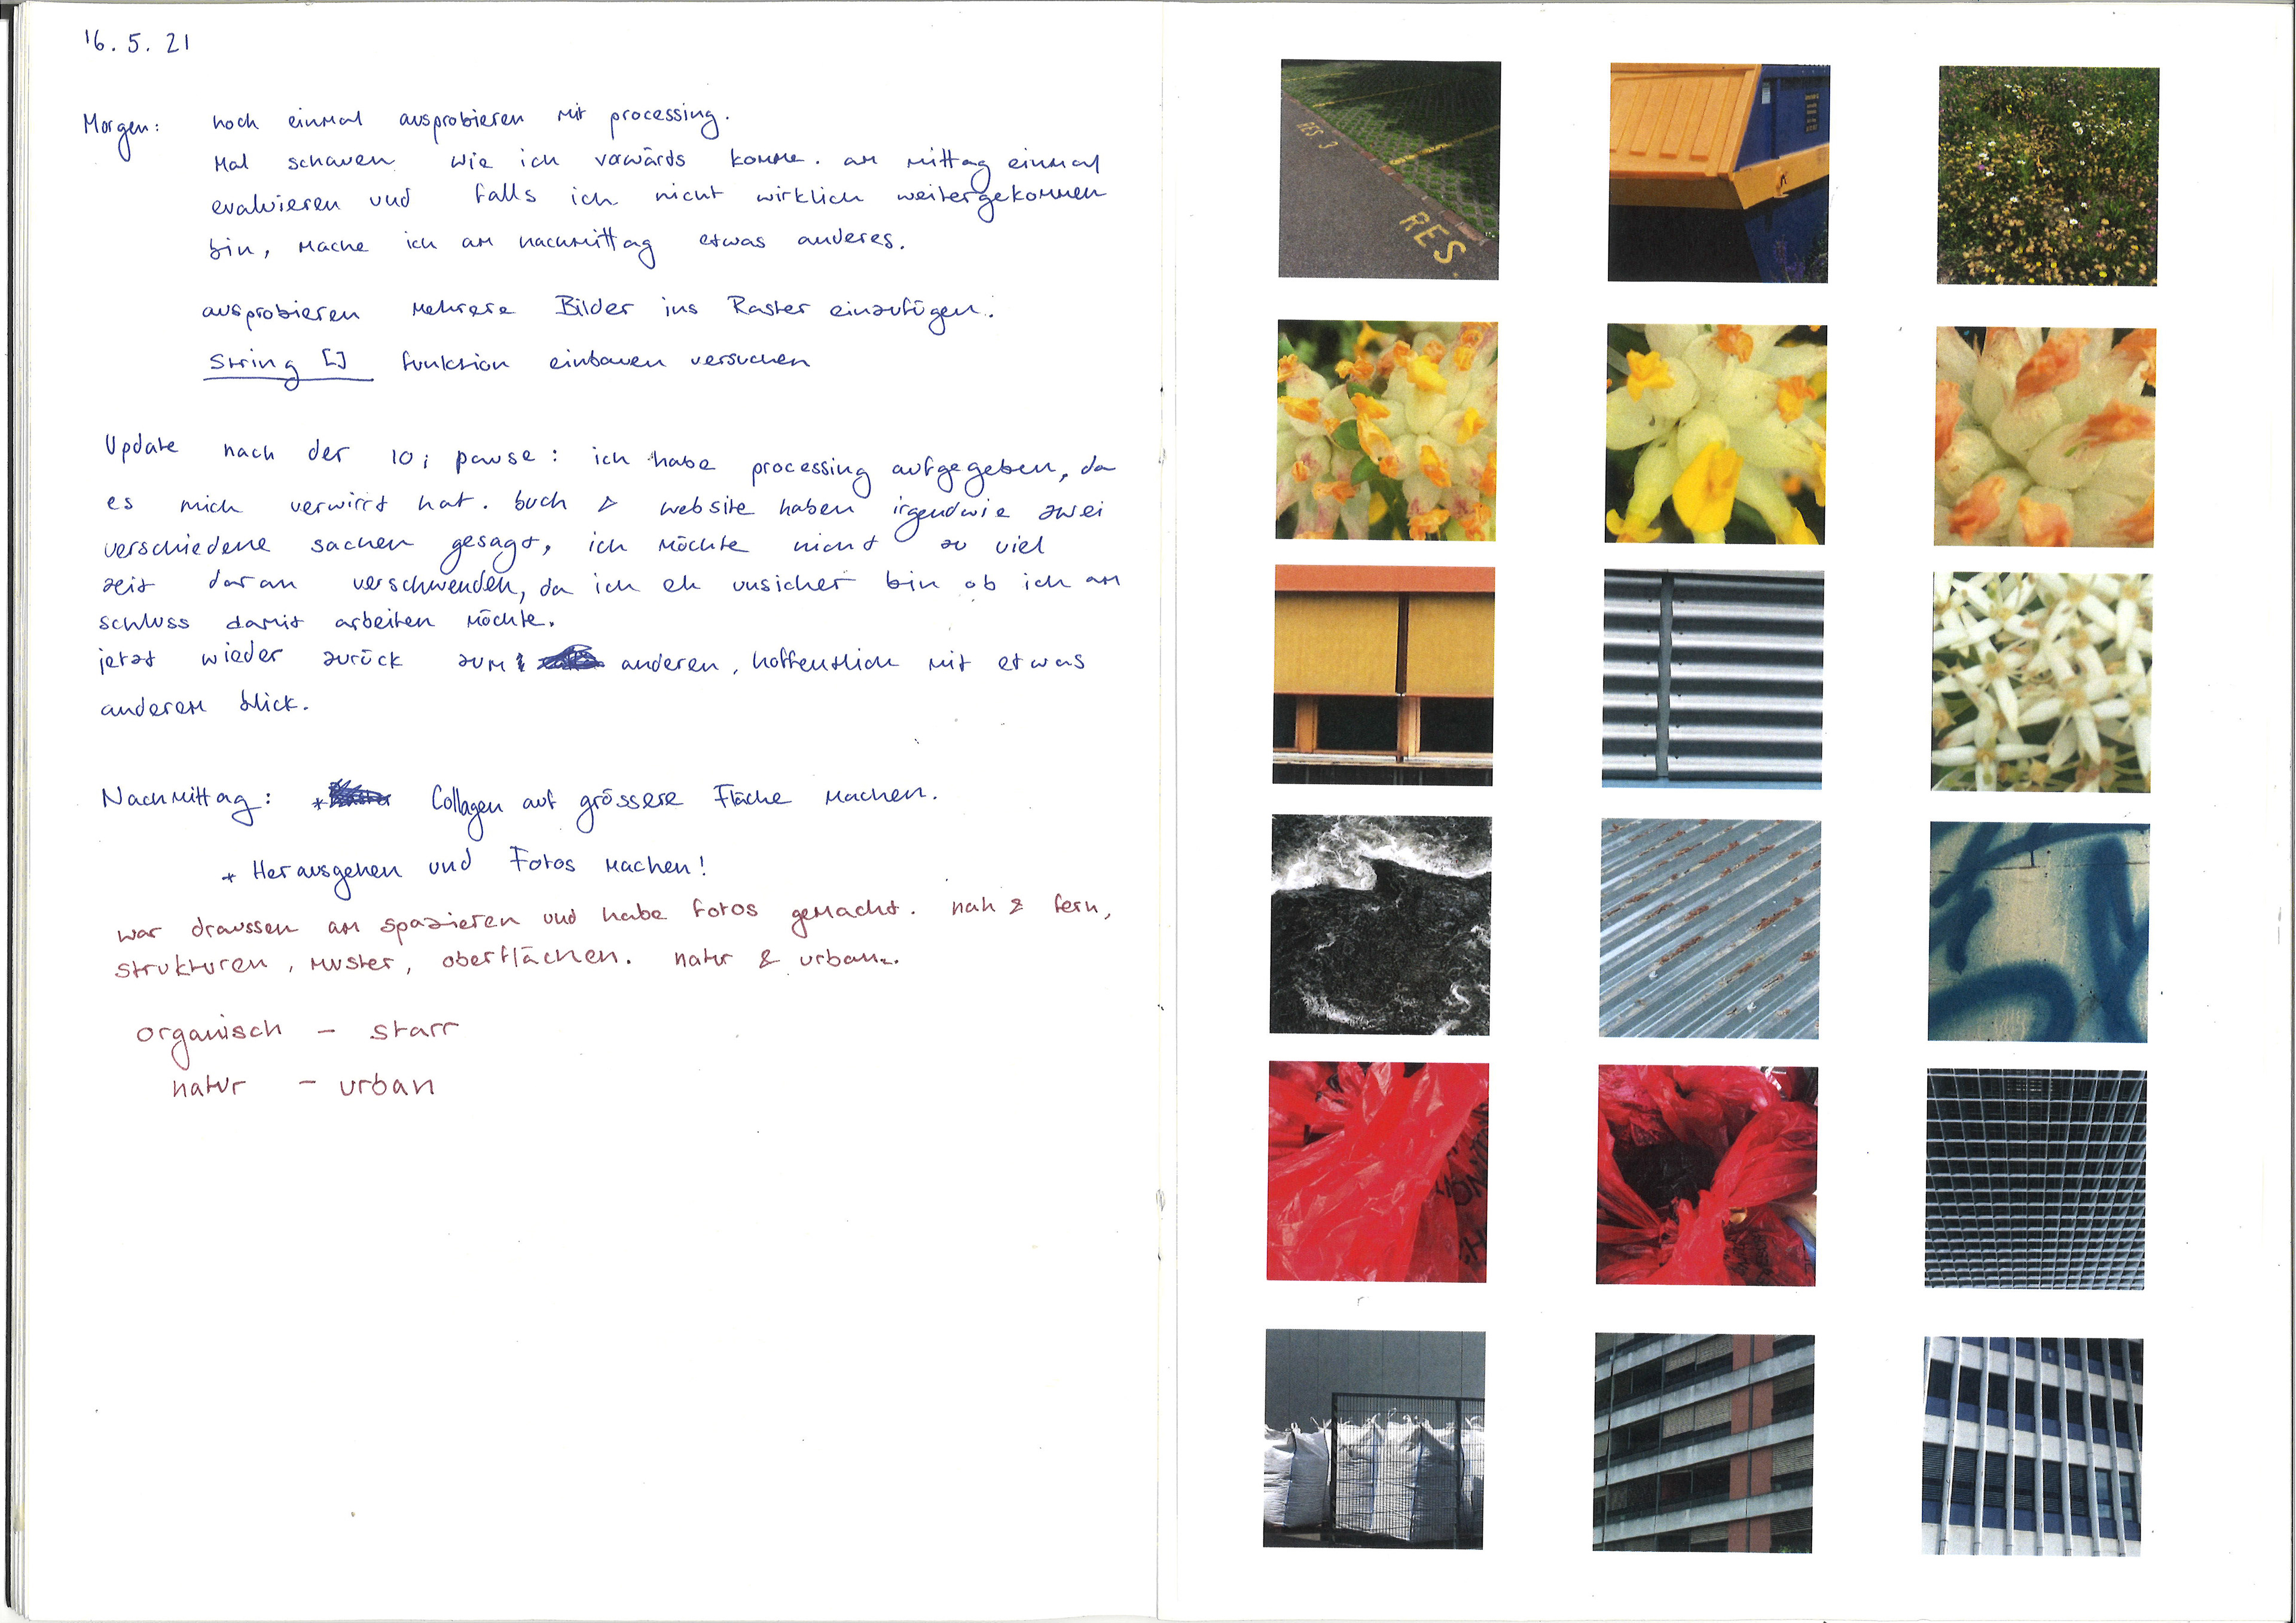 16. 5. 21
Morgen: noch einmal ausprobieren mit processing.
Mal schauen wie ich vorwärds komme. am mittag einmal
evaluieren und falls ich nicht wirklich weitergekommen
bin, mache ich am nachmittag etwas anderes.
ausprobieren mehrere Bilder ins Raster einzufügen.
String [] funktion einbauen versuchen
Update nach der 10i pause: ich habe processing aufgegeben, da
es mich verwirrt hat. buch & website haben irgendwie zwei
verschiedene sachen gesagt, ich möchte nicht zu viel
zeit daran verschwenden, da ich eh unsicher bin ob ich am
schluss damit arbeiten möchte.
jetzt wieder zurück zum anderen, hoffentlich mit etwas
anderem blick.
Nachmittag: * Collagen auf grössere Fläche machen.
* Herausgehen und Fotos machen!
war draussen am spazieren und habe fotos gemacht. nah & fern,
strukturen, muster, oberflächen. natur & urban.
organisch - starr
natur - urban
RES 3
RES.